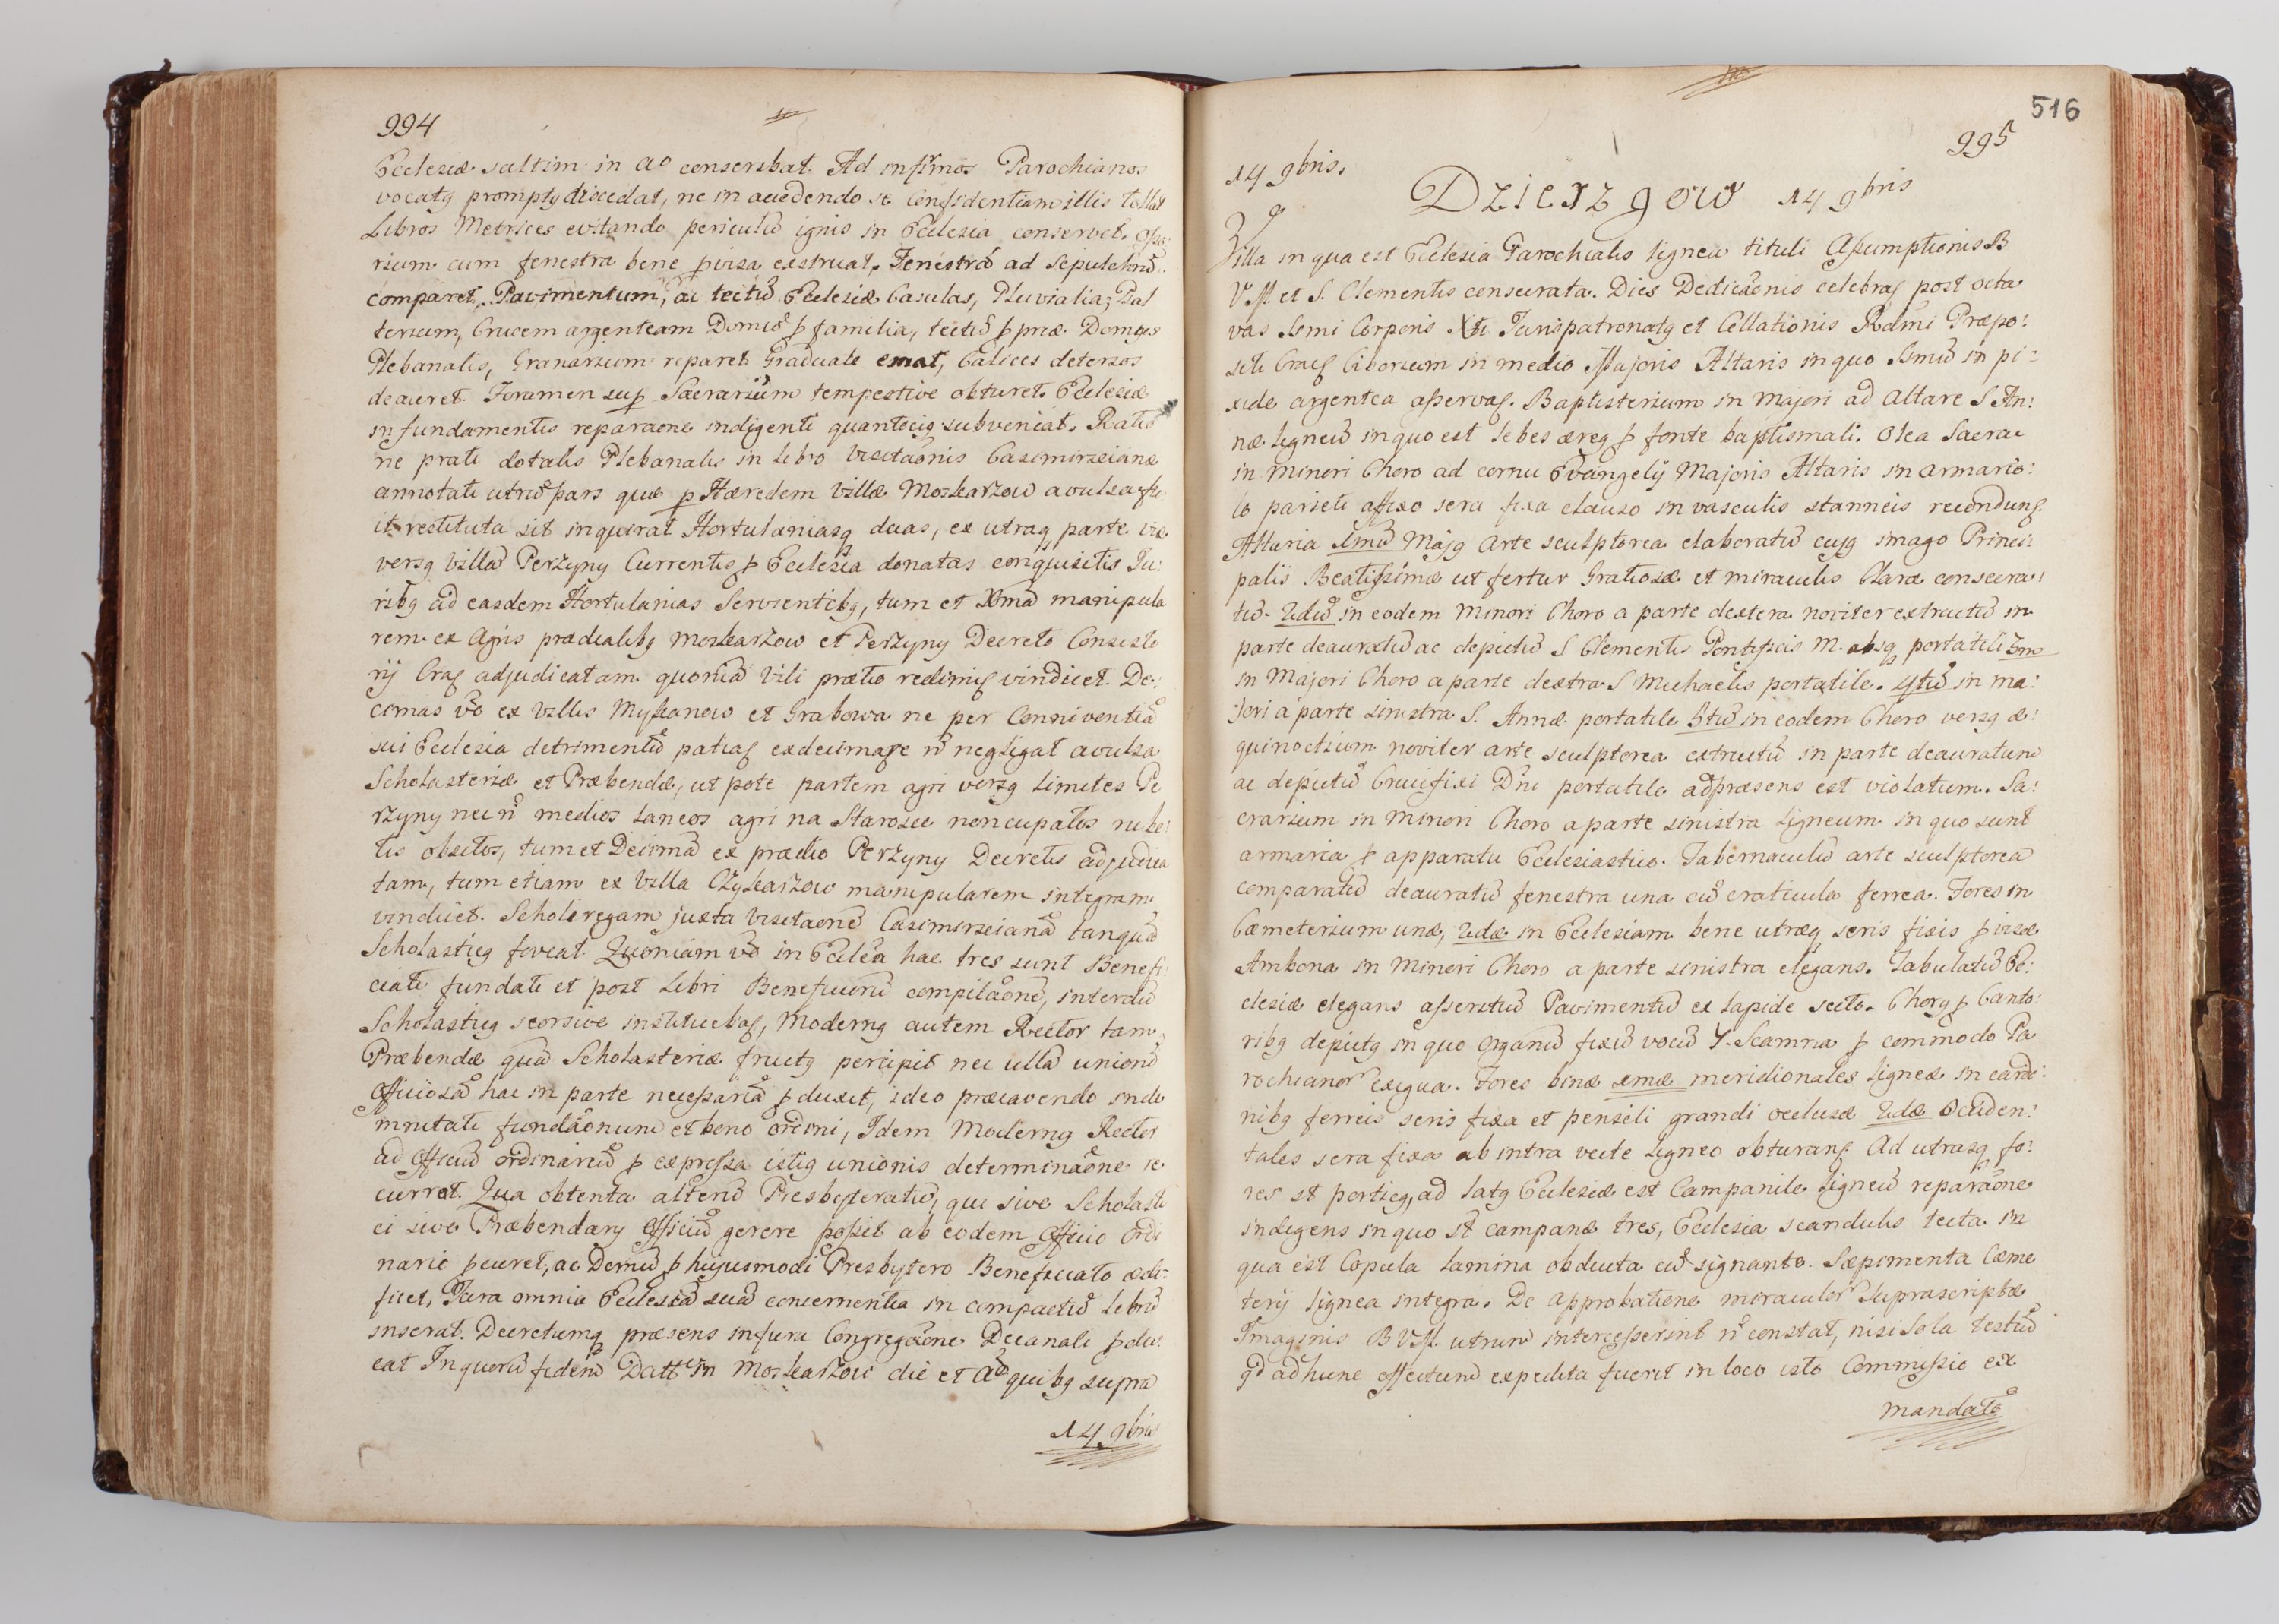 994
Ecclesiæ saltim in ao conscribat. Ad infirmos Parochianos
vocatg prompty discedat, ne in accedendo se confidentiam illis tollat
Libros Metrices evitando periculū ignis in Ecclesia conservet. Ossa:
rium cum fenestra bene pvisa exstruat. Fenestrā ad Sepulchrū
comparet, Pavimentum, ac tectū Ecclesiæ Casulas, Pluvialia, Psal
terium, Crucem argenteam Domū p familia, tectū p præ Domg
Plebanalis, Granarium reparet Graduale emat, Calices detersos
deauret. Foramen sup Sacrarium tempestive obturet. Ecclesiæ
in fundamentis reparaone indigenti quantocig subveniat. Ratio
ne prati dotalis Plebanalis in Libro Visitaonis Casimirzianæ
annotati utrū pars quæ p Hæredem Villæ Moskarzow avulsa fu
it restituta sit inquirat Hortulaniasq duas, ex utraq parte viæ
versg villā Perzyny Currentis p Ecclesia donatas conquisitis Ju:
ribg ad easdem Hortulanias Servientibg, tum et Xmā manipula
rem ex Agris prædialibg Moskarzow et Perzyny Decreto Consisto
rij Crac adjudicatam quoniā vili prætio redimit vindicet. De:
cimas vō ex villis Myskanow et Grabowa ne per Conniventiā
sui Ecclesia detrimentū patiat exdecimare ñ negligat avulsa
Scholasteriæ et Præbendæ, ut pote partem agri versg limites Pe
rzyny nec ñ medios laneos agri na Starosce noncupatos rube
tis obsitos, tum et Decimā ex prædio Perzyny Decretis adjudica
tam, tum etiam ex Villa Chlykarzow manipularem integram
vindicet. Scholæ regam juxta visitaonē Casimirzianā tanquā
Scholasticg foveat. Quoniam vō in Ecclēa hac tres sunt Benefi:
ciati fundati et post Libri Beneficiorū compilaonē, interdū
Scholasticg seorsive instituebat, Moderng autem Rector tam
Præbendæ quā Scholasteriæ fructg percipit nec ullā unionē
officiosā hac in parte necessariā p duxit, ideo præcavendo inde
mnitati fundaonum et bono ordini, Idem Moderng Rector
ad officiū ordinariū p expressa istig unionis determinaone re
currat. Qua obtenta alterū Presbyteratū, qui sive Scholasti
ci sive Præbendary officiū gerere possit ab eodem officio Ordi
nario pcuret, ac Domū p hujusmodi Presbytero Beneficiato ædi:
ficet, Jura omnia Ecclesiā suā concernentia in compactū Librū
inserat. Decretumq præsens in fura Congregaone Decanali pdu:
cat In quorū fidem Datt in Moskarzow die et Ao quibg supra
14 9bris
516
995
14 9bris.
Dzierzgow 14 9bris
Villa in qua est Ecclesia Parochialis lignea tituli Assumptionis B
V.M. et S. Clementis consecrata. Dies Dedicaonis celebrat post octa
vas Ssmi Corporis Xti Jurispatronatg et Collationis Rdmi Præpo:
siti Crac Ciborium in medio Majoris Altaris in quo Ssmū in pi:
xide argentea asservat. Baptisterium in Majori ad Altare S An:
næ ligneū in quo est lebes æreg p fonte baptismali. Olea Sacra
in minori Choro ad cornu Evangelij Majoris Altaris in armario:
lo parieti affixo sera fixa clauso in vasculis stanneis recondunt
Altaria 1mū Majg arte sculptorea elaboratū cujg imago Princi:
palis Beatissimæ ut fertur Gratiosæ et miraculis Claræ consecra:
tū. 2dū in eodem minori Choro a parte dextera noviter extructū in
parte deauratū ac depictū S Clementis Pontificis M. absq portatili 3m
in Majori Choro a parte dextra S Michaelis portatile. 4tū in ma:
jori a parte sinistra S. Annæ portatile 5tū in eodem Choro versg æ:
quinoctium noviter arte sculptorea extructū in parte deauratum
ac depictū Crucifixi Dni portatile ad præsens est violatum. Sa:
crarium in minori Choro a parte sinistra ligneum in quo sunt
armaria p apparatu Ecclesiastico. Tabernaculū arte sculptorea
comparatū deauratū fenestra una cū craticula ferrea. Fores in
Cæmeterium unæ, 2dæ in Ecclesiam bene utræq seris fixis pvisæ
Ambona in minori Choro a parte sinistra elegans. Tabulatū Ec:
clesiæ elegans asseritū Pavimentū ex lapide secto. Chorg p Canto:
ribg depictg in quo organū fixū vocū 4. Scamna p commodo Pa
rochianor exigua. Fores binæ 1mæ meridionales ligneæ in cardi:
nibg ferreis seris fixa et pensili grandi occlusæ 2dæ Occiden:
tales sera fixa ab intra vecte ligneo obturant Ad utrasq fo:
res st porticg, ad latg Ecclesiæ est Campanile ligneū reparaone
indigens in quo st campanæ tres, Ecclesia scandulis tecta in
qua est Copula lamina obducta cū signanto. Sæpimenta Cæme
terij lignea integra. De approbatione miraculor Suprascriptæ
Imaginis B V.M. utrum intercesserint ñ constat, nisi Sola testū
qd ad hunc effectum expedita fuerit in loco isto Commissio ex
mandato